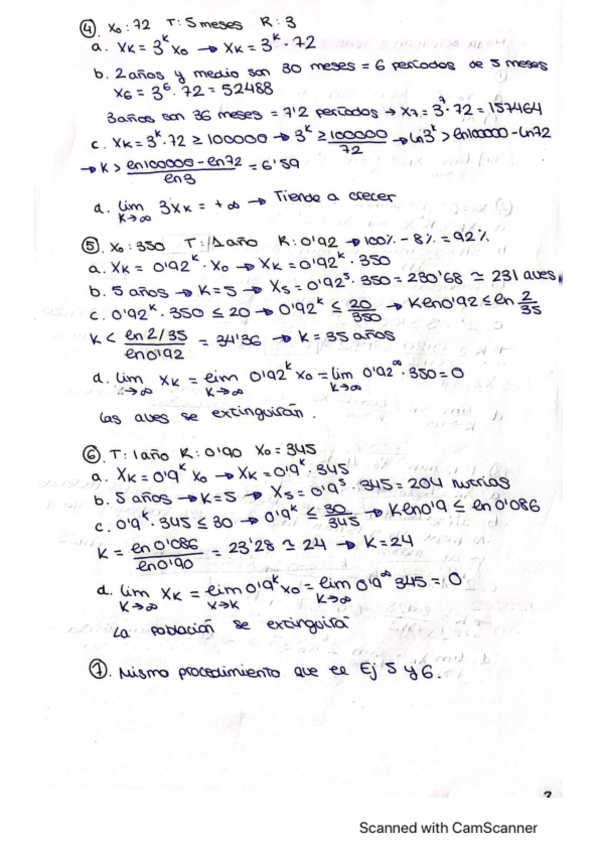 ④. X₀: 72 T: 5 meses R: 3
a. Xₖ = 3ᵏ X₀ → Xₖ = 3ᵏ · 72
b. 2 años y medio son 30 meses = 6 períodos de 5 meses
X₆ = 3⁶ · 72 = 52488
3 años son 36 meses = 7'2 períodos → X₇ = 3⁷ · 72 = 157464
c. Xₖ = 3ᵏ · 72 ≥ 100000 → 3ᵏ ≥ 100000/72 → ln3ᵏ > ln100000 - ln72
→ K > (ln100000 - ln72)/ln3 = 6'59
d. lim K→∞ 3Xₖ = +∞ → Tiende a crecer
⑤. X₀: 350 T: 1 año R: 0'92 → 100% - 8% = 92%
a. Xₖ = 0'92ᵏ · X₀ → Xₖ = 0'92ᵏ · 350
b. 5 años → K = 5 → X₅ = 0'92⁵ · 350 = 230'68 ≃ 231 aves.
c. 0'92ᵏ · 350 ≤ 20 → 0'92ᵏ ≤ 20/350 → K ln0'92 ≤ ln 2/35
K < ln 2/35 / ln0'92 = 34'36 → K = 35 años
d. lim →∞ Xₖ = lim K→∞ 0'92ᵏ X₀ = lim K→∞ 0'92^∞ · 350 = 0
Las aves se extinguirán.
⑥. T: 1 año R: 0'90 X₀ = 345
a. Xₖ = 0'9ᵏ X₀ → Xₖ = 0'9ᵏ · 345
b. 5 años → K = 5 → X₅ = 0'9⁵ · 345 = 204 nutrias
c. 0'9ᵏ · 345 ≤ 30 → 0'9ᵏ ≤ 30/345 → K ln0'9 ≤ ln 0'086
K = ln 0'086 / ln 0'90 = 23'28 ≃ 24 → K = 24
d. lim K→∞ Xₖ = lim x→K 0'9ᵏ X₀ = lim K→∞ 0'9^∞ 345 = 0
La población se extinguirá
⑦. Mismo procedimiento que el Ej 5 y 6.
Scanned with CamScanner